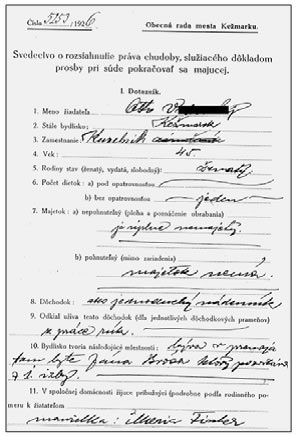 Číslo 5253 /1926
Obecná rada mesta Kežmarku.
Svedectvo o rozsiahnutie práva chudoby, slúžiaceho dôkladom
prosby pri súde pokračovať sa majucej.
I. Dotazník.
1. Meno žiadateľa Otto
2. Stále bydlisko: Kežmarok
3. Zamestnanie:
4. Vek: 45
5. Rodiny stav (ženatý, vydatá, slobodný): ženatý
6. Počet dietok: a) pod opatrovnosťou
b) bez opatrovnosti jeden
7. Majetok: a) nepohuteľný (plocha a poznáčenie obrabania)
je úplne nemajetný
b) pohnuteľný (mimo zariadenia)
majetok nemá.
8. Dôchodok: ako jednoduchý nádenník
9. Odkiaľ uživa tento dôchodok (dľa jednotlivých dôchodkových prameňov)
z práce rúk.
10. Bydlisko tvoria následujúcé miestnosti: býva v
byte Jána
z 1. izby.
11. V spoločnej domácnosti žijúce pribužní (podrobne podľa rodinného po-
meru k žiadateľom
manželka: Maria